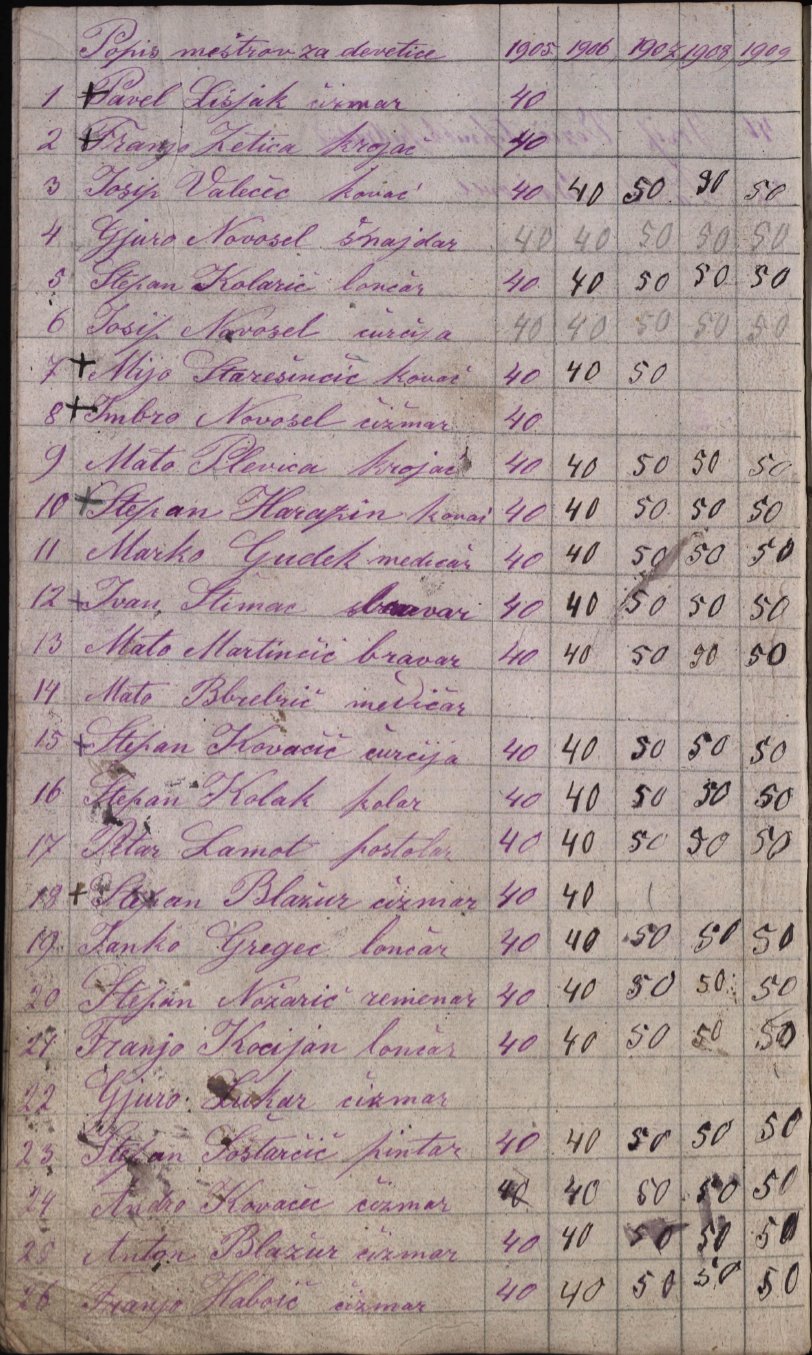 Popis meštrov za devetice 1905 1906 1907 1908 1909
1 + Pavel Lisjak čizmar 40
2 + Franjo Zetica krojac 40
3 Josip Valečec kovač 40 40 50 50 50
4 Gjuro Novosel šnajdar 40 40 50 50 50
5 Stepan Kolarić lončar 40 40 50 50 50
6 Josip Novosel ćurčija 40 40 50 50 50
7 + Mijo Starešinčić kovač 40 40 50
8 + Imbro Novosel čižmar 40
9 Mato Plevica krojač 40 40 50 50 50
10 + Stepan Harapin kovač 40 40 50 50 50
11 Marko Gudek medičar 40 40 50 50 50
12 + Ivan Štimac 40 40 50 50 50
13 Mato Martinčić bravar 40 40 50 50 50
14 Mato medičar
15 + Stepan Kovačić ćurčija 40 40 50 50 50
16 Stepan Kolak kolar 40 40 50 50 50
17 Petar Lamot postolar 40 40 50 50 50
18 + Stepan Blažur čizmar 40 40
19 Janko Gregec lončar 40 40 50 50 50
20 Stepan Nožarić remenar 40 40 50 50 50
21 Franjo Kocijan lončar 40 40 50 50 50
22 Gjuro Lukar čizmar
23 Stepan Šoštarčić pintar 40 40 50 50 50
24 Andro Kovačec čizmar 40 40 50 50 50
25 Anton Blažur čizmar 40 40 50 50 50
26 Franjo čizmar 40 40 50 50 50